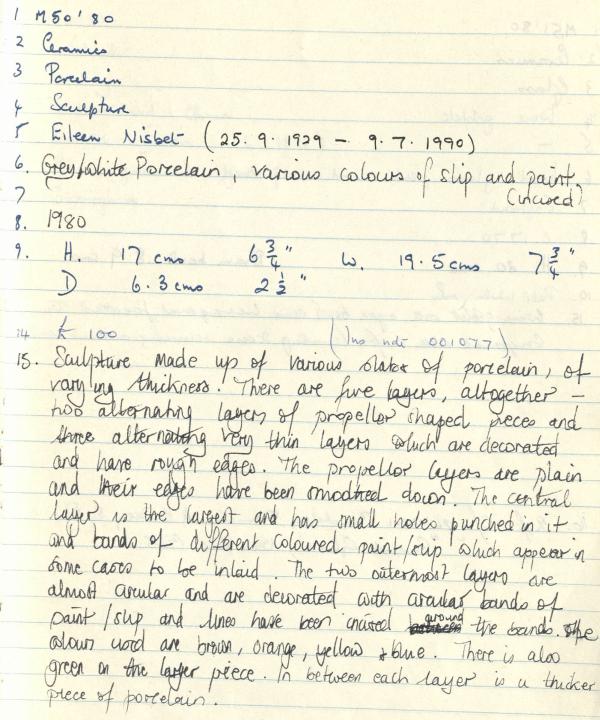 1 M50'80
2 Ceramics
3 Porcelain
4 Sculpture
5 Eileen Nisbet (25.9.1929 – 9.7.1990)
6. Grey/white Porcelain, various colours of slip and paint
7 (incised)
8. 1980
9. H. 17 cms 6 3/4" W. 19.5 cms 7 3/4"
D 6.3 cms 2 1/2"
14 £ 100 (Ins ndt 001077)
15. Sculpture made up of various slabs of porcelain, of
varying thickness. There are five layers, altogether –
two alternating layers of propellor shaped pieces and
three alternating very thin layers which are decorated
and have rough edges. The propellor layers are plain
and their edges have been smoothed down. The central
layer is the largest and has small holes punched in it
and bands of different coloured paint/slip which appear in
some cases to be inlaid. The two outermost layers are
almost circular and are decorated with circular bands of
paint/slip and lines have been incised around the bands. The
colours used are brown, orange, yellow & blue. There is also
green on the larger piece. In between each layer is a thicker
piece of porcelain.